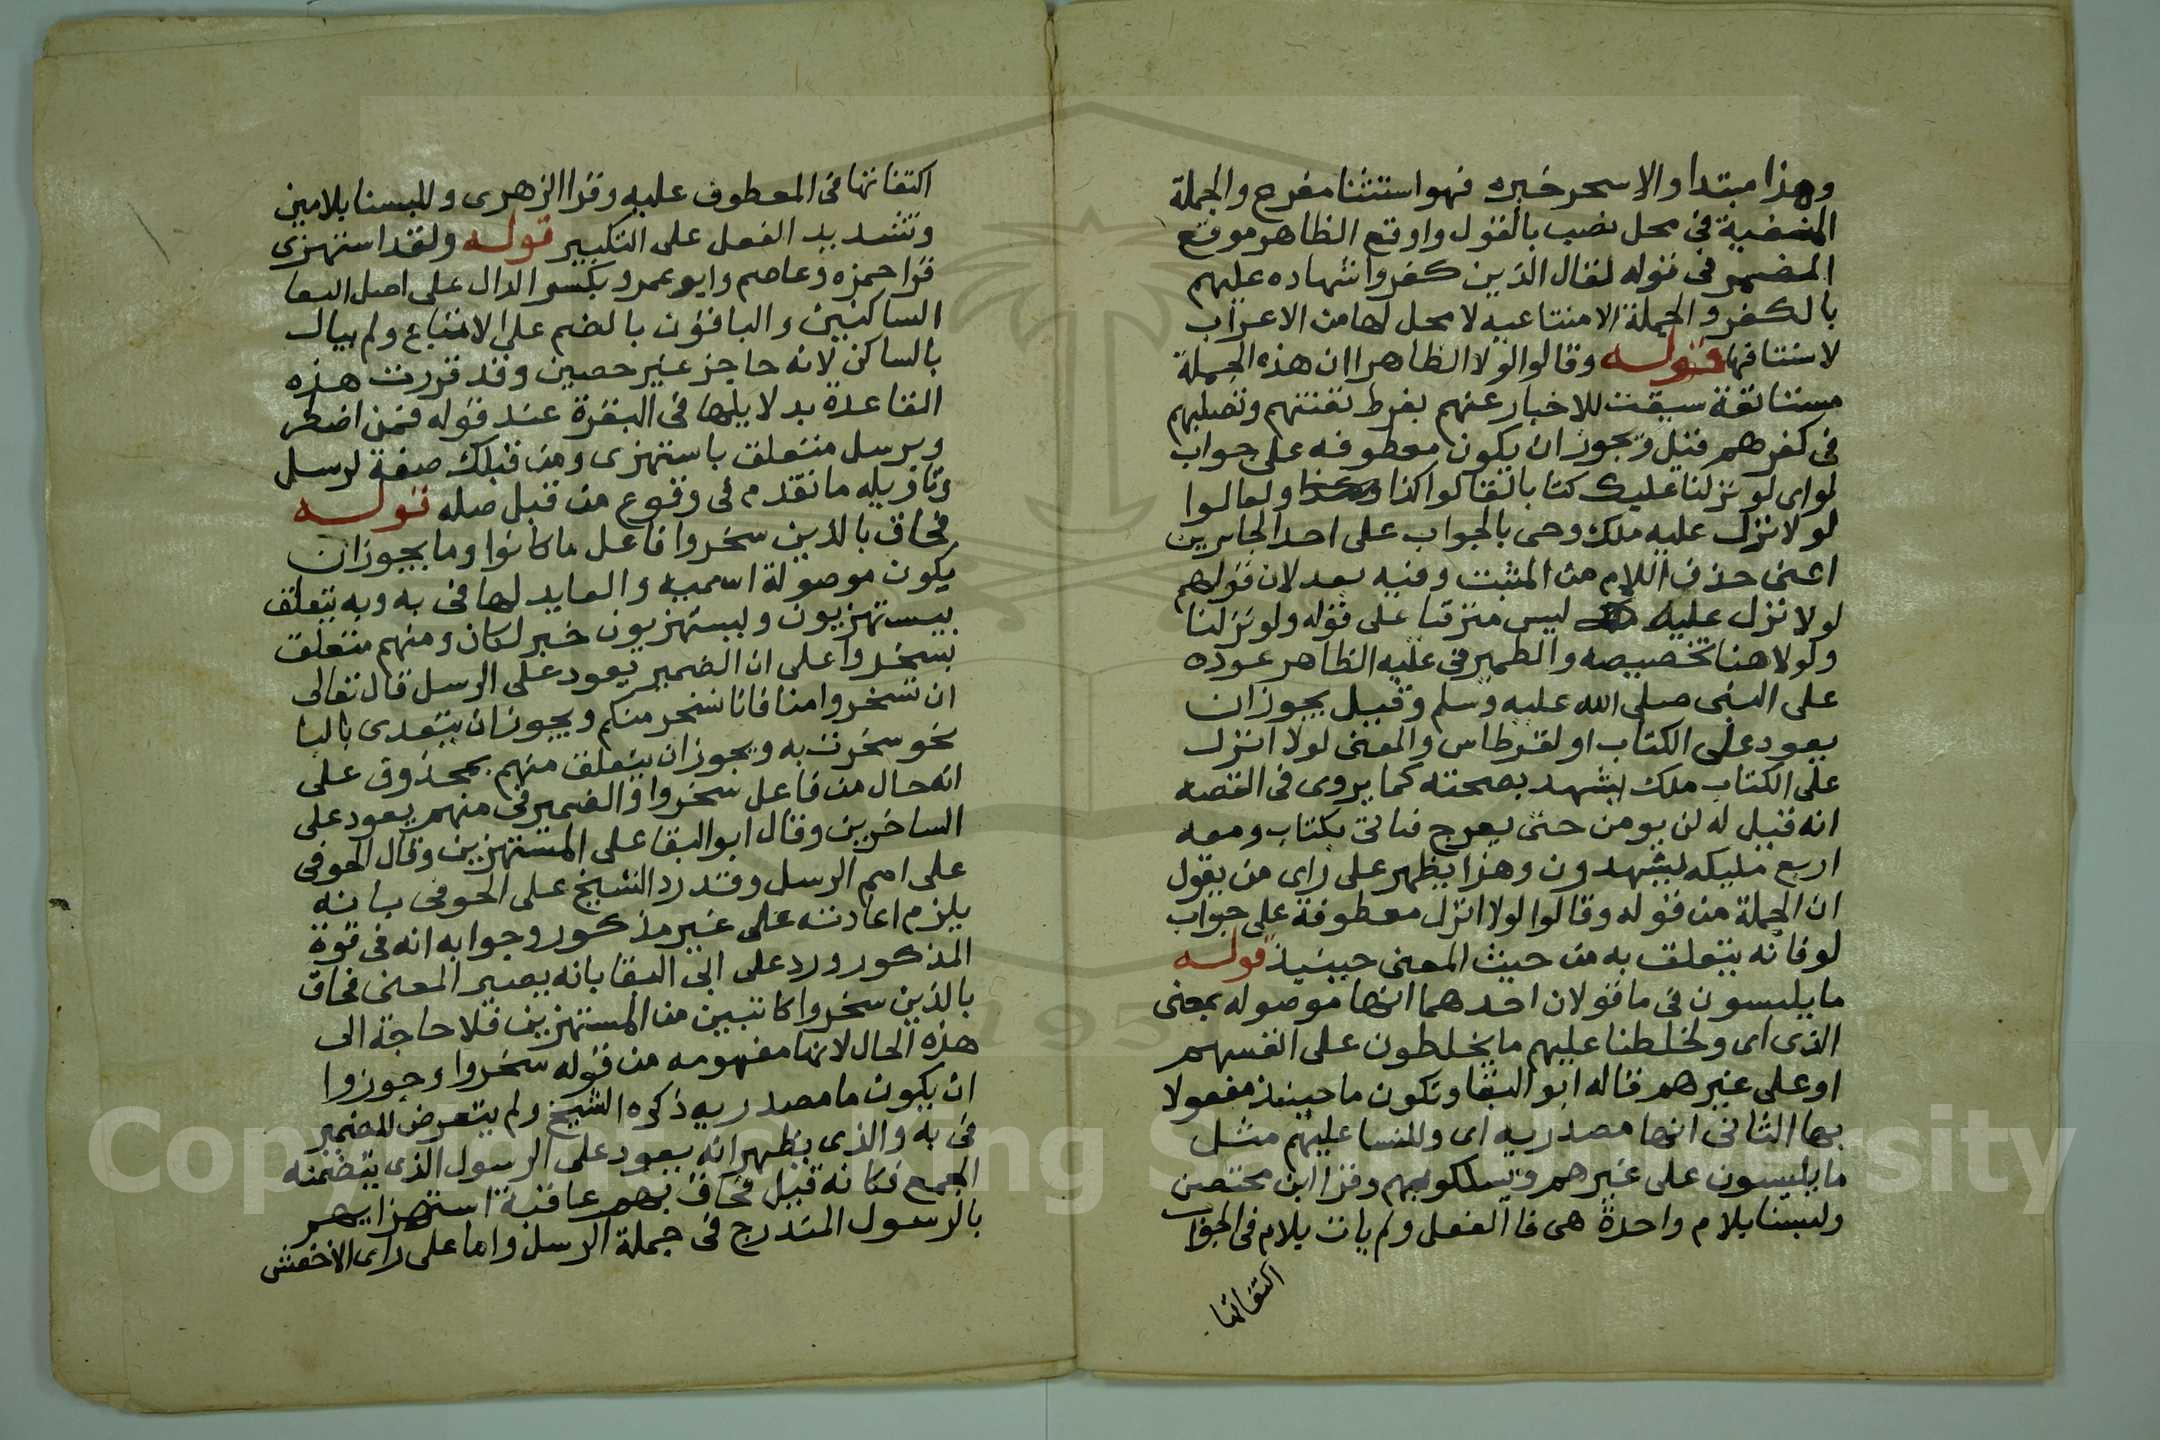 وهذا مبتدا والاسحر خبره فهو استثنا مفرح والجملة
المنفية في محل نصب بالقول واوقع الظاهر موقع
المضمر في قوله لقال الذين كفروا شهاده عليهم
بالكفر والجملة الامتناعيه لا محل لها من الاعراب
لاستنافها قوله وقالوا لولا الظاهر ان هذه الجملة
مستانفة سيقت للاخبار عنهم بفرط تعنتهم وتصلبهم
في كفرهم قيل ويجوز ان يكون معطوفه على جواب
لو اى لو نزلنا عليك كتابا لقالوا كذا ولقالوا
لولا نزل عليه ملك وحى بالجواب على احد الجايزين
اعنى حذف اللام من المثبت وفيه بعد لان قولهم
لولا نزل عليه ليس مترتبا على قوله ولو نزلنا
ولولا هنا تخصيصه والضمير في عليه الظاهر عوده
على النبى صلى الله عليه وسلم وقيل يجوز ان
يعود على الكتاب او لقرطاس والمعنى لولا انزل
على الكتاب ملك ليشهد بصحته كما يروى في القصه
انه قيل له لن يومن حتى يعرج فياتى بكتاب ومعه
اربع مليكه ليشهدون وهذا يظهر على راى من يقول
ان الجملة من قوله وقالوا لولا انزل معطوفة على جواب
لو فانه يتعلق به من حيث المعنى حينيذ قوله
ما يلبسون في ما قولان احدهما انها موصوله بمعنى
الذى اى ولخلطنا عليهم ما يخلطون على انفسهم
او على غيرهم قاله ابو البقا وتكون ما حينيذ مفعولا
بها الثانى انها مصدريه اى وللبسا عليهم مثل
ما يلبسون على غيرهم ويسلكوبهم وقرا ابن محتصن
ولبسنا بلام واحدة هى فا الفعل ولم يات بلام في الجواب
اكتفاتها
اكتفاتها في المعطوف عليه وقرا الزهرى وللبسنا بلامين
وتشديد الفعل على التكبير قوله ولقد استهزى
قرا حمزه وعاصم وابو عمرو بكسر الدال على اصل التقا
الساكنين والباقون بالضم على الاتباع ولم يبال
بالساكن لانه حاجز غير حصين وقد قررت هذه
القاعدة بدلايلها في البقرة عند قوله فمن اضطر
وبرسل متعلق باستهزى ومن قبلك صفة لرسل
وتاويله ما تقدم في وقوع من قبل صله قوله
فحاق بالذين سخروا فاعل ما كانوا وما يجوز ان
يكون موصولة اسميه والعايد لها في به وبه يتعلق
بيستهزيون ويستهزيون خبر لكان ومنهم متعلق
بسخروا على ان الضمير يعود على الرسل قال تعالى
ان تسخروا منا فانا نسخر منكم ويجوز ان يتعدى بالبا
نحو سخرت به ويجوز ان يتعلق منهم بمحذوف على
انه حال من فاعل سخروا والضمير في منهم يعود على
الساخرين وقال ابو البقا على المستهزين وقال الحوفى
على امم الرسل وقد رد الشيخ على الحوفى بانه
يلزم اعادته على غير مذكور وجوابه انه في قوة
المذكور ورد على ابى البقا بانه يصير المعنى فحاق
بالذين سخروا كاتبين من المستهزين فلا حاجة الى
هذه الحال لانها مفهومه من قوله سخروا وجوزوا
ان يكون ما مصدريه ذكره الشيخ ولم يتعرض للضمير
في به والذى يظهر انه يعود على الرسول الذى يتضمنه
الجمع فكانه قيل فحاق بهم عاقبة استهزايهم
بالرسول المندرج في جملة الرسل واما على راى الاخفش